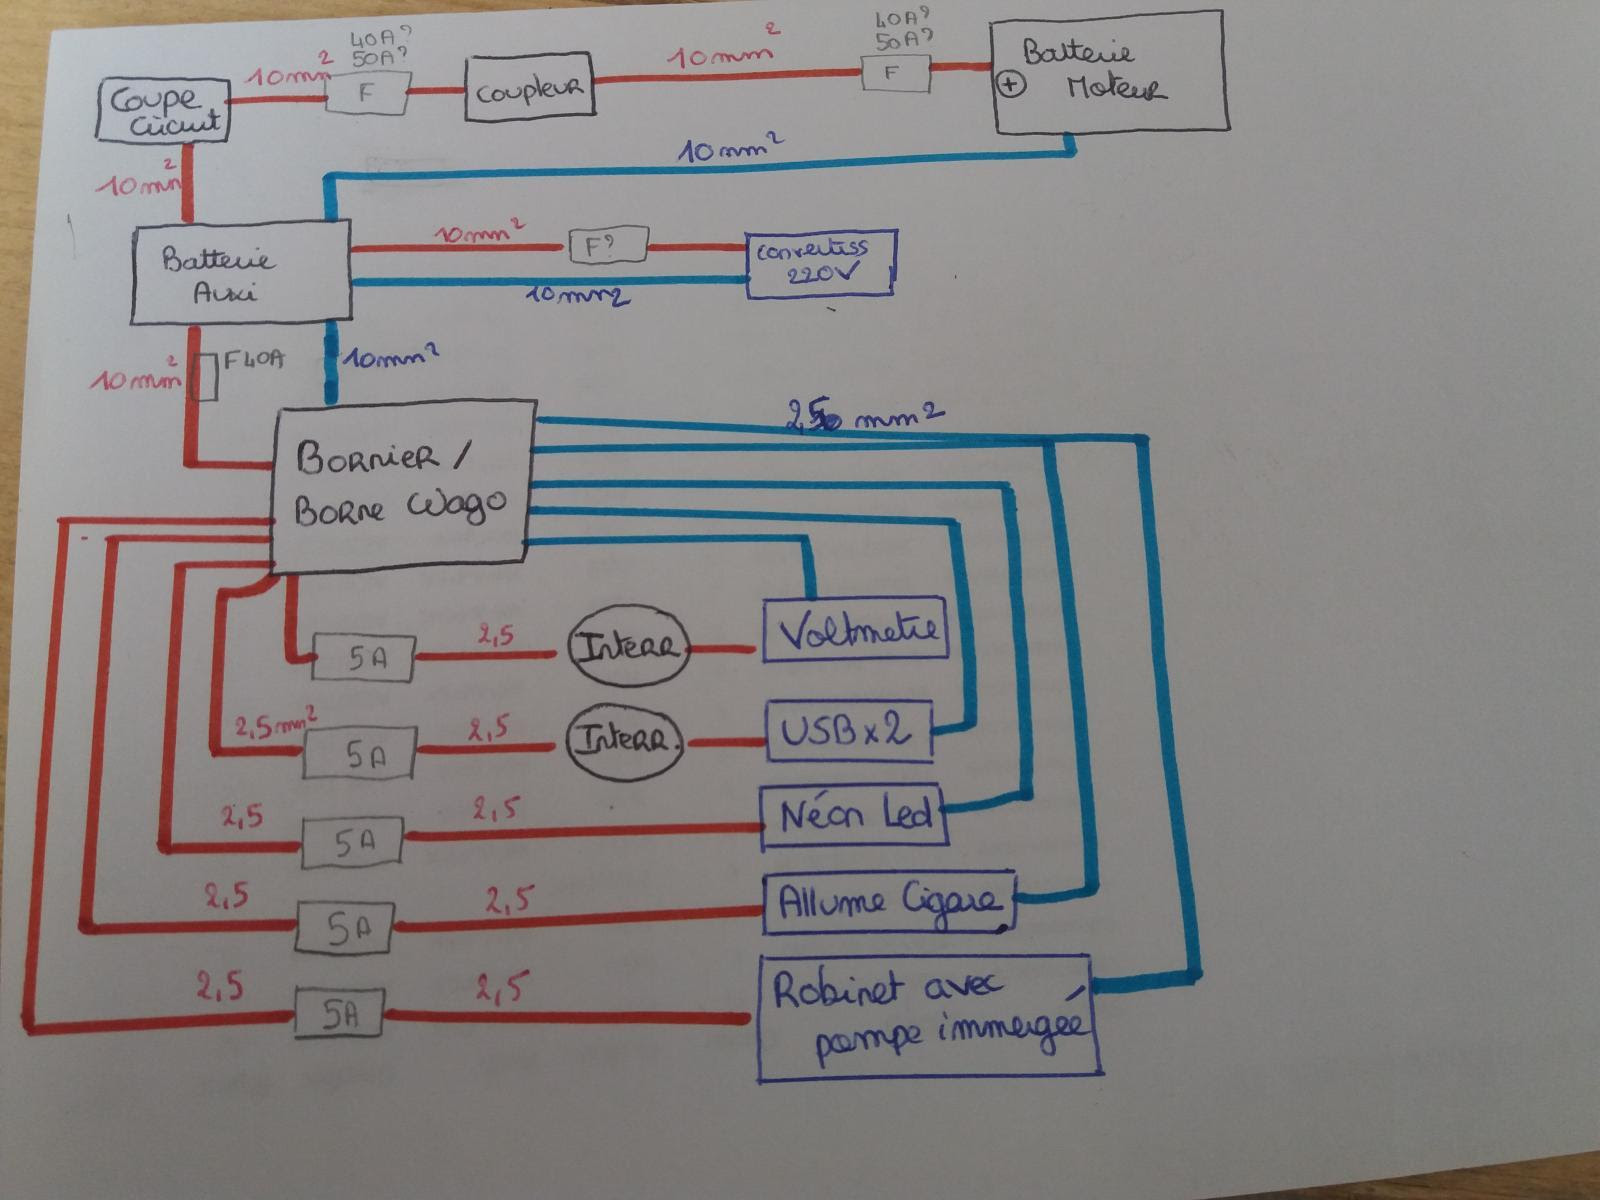 40A?
50A?
10mm²
F
Coupe
Circuit
Coupleur
10mm²
40A?
50A?
F
Batterie
+ Moteur
10mm²
10mm²
Batterie
Auxi
10mm²
F?
convertiss
220V
10mm2
10mm²
F40A
10mm²
Bornier /
Borne Wago
mm²
5A
2,5
Interr
Voltmetre
2,5mm²
5A
2,5
Interr.
USBx2
2,5
5A
2,5
Néon Led
2,5
5A
2,5
Allume Cigare
2,5
5A
2,5
Robinet avec
pompe immergée